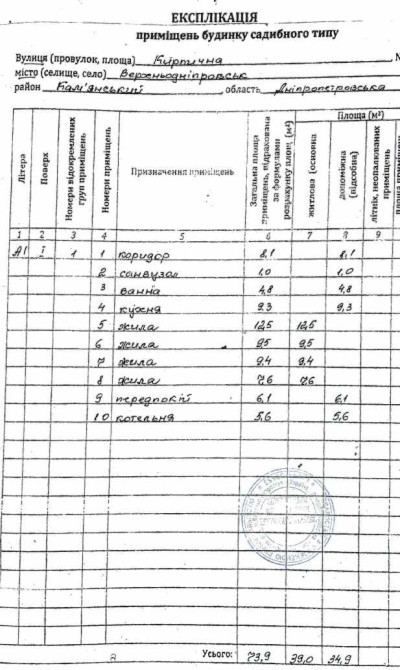 ЕКСПЛІКАЦІЯ
приміщень будинку садибного типу
Вулиця (провулок, площа) Кирпична
місто (селище, село) Верхньодніпровськ
район Кам'янський, область Дніпропетровська
Площа (м²)
Літера
Поверх
Номери відокремлених груп приміщень
Номери приміщень
Призначення приміщень
Загальна площа приміщень, підрахована за формулами розрахунку площ (м²)
житлова (основна)
допоміжна (підсобна)
літніх, неопалюваних приміщень
1 2 3 4 5 6 7 8 9
А1 І 1 1 коридор 8,1 8,1
2 санвузол 1,0 1,0
3 ванна 4,8 4,8
4 кухня 9,3 9,3
5 жила 12,5 12,5
6 жила 9,5 9,5
7 жила 9,4 9,4
8 жила 7,6 7,6
9 передпокій 6,1 6,1
10 котельня 5,6 5,6
Усього: 73,9 39,0 34,9